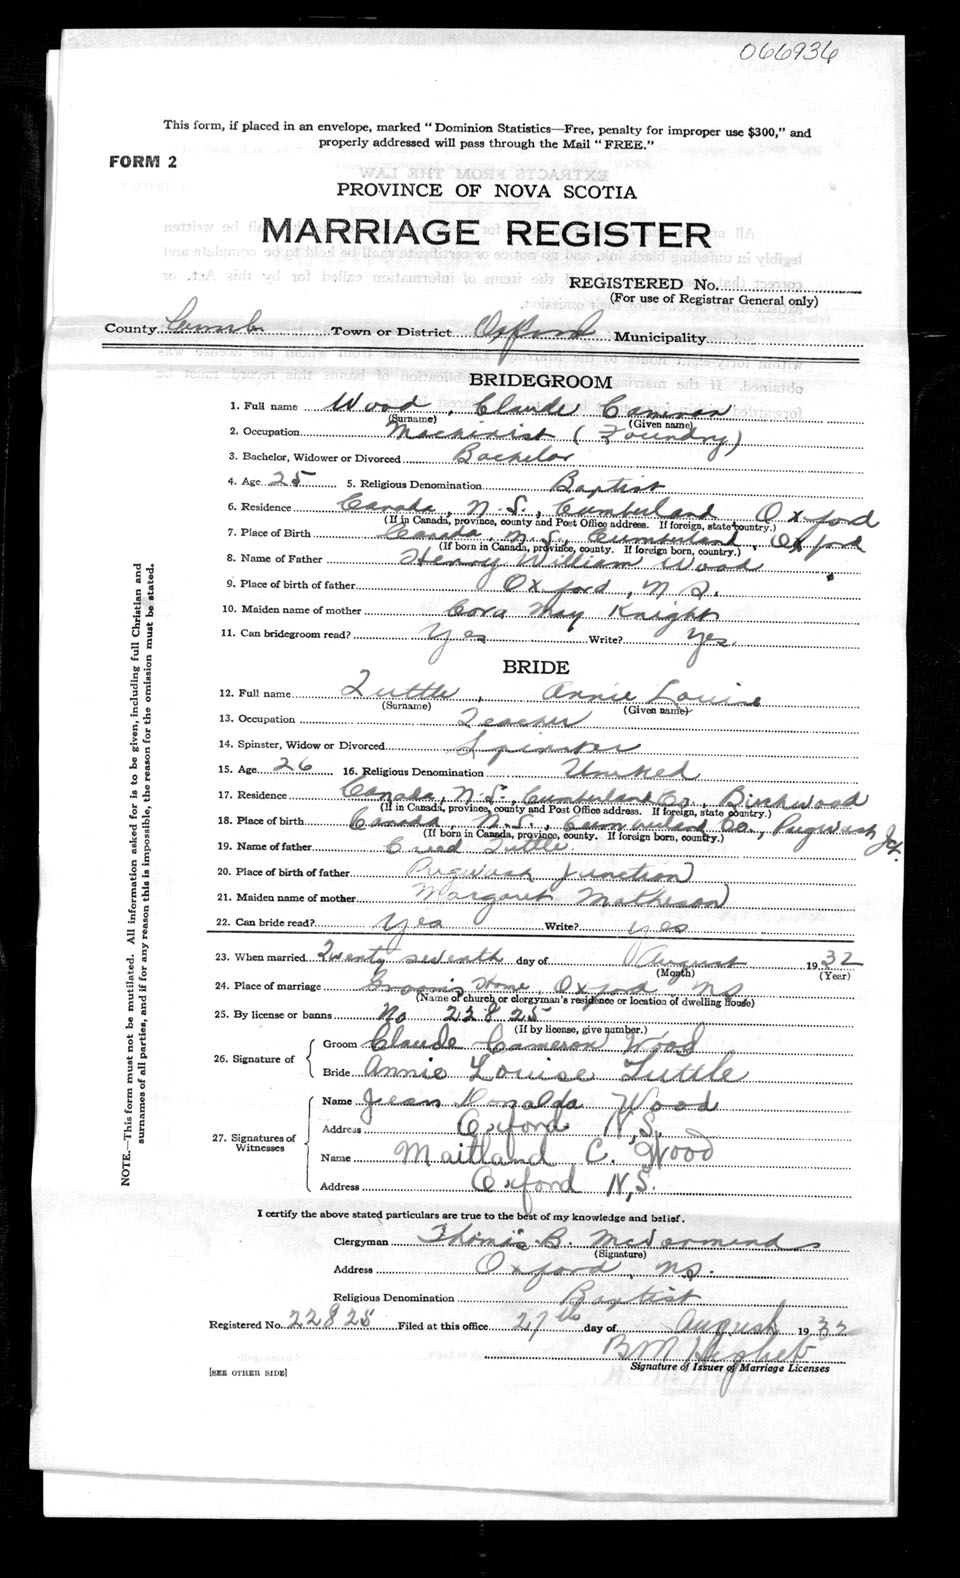 066936
This form, if placed in an envelope, marked "Dominion Statistics—Free, penalty for improper use $300," and
properly addressed will pass through the Mail "FREE."
FORM 2
PROVINCE OF NOVA SCOTIA
MARRIAGE REGISTER
REGISTERED No.
(For use of Registrar General only)
County Cumb Town or District Oxford Municipality
BRIDEGROOM
1. Full name Wood, Claude Cameron
(Surname) (Given name)
2. Occupation Machinist (Foundry)
3. Bachelor, Widower or Divorced Bachelor
4. Age 25 5. Religious Denomination Baptist
6. Residence Canada, N.S., Cumberland Oxford
(If in Canada, province, county and Post Office address. If foreign, state country.)
7. Place of Birth Canada, N.S., Cumberland, Oxford
(If born in Canada, province, county. If foreign born, country.)
8. Name of Father Henry William Wood
9. Place of birth of father Oxford, N.S.
10. Maiden name of mother Cora May Knight
11. Can bridegroom read? Yes Write? Yes.
BRIDE
12. Full name Tuttle, Annie Louise
(Surname) (Given name)
13. Occupation Teacher
14. Spinster, Widow or Divorced Spinster
15. Age 26 16. Religious Denomination United
17. Residence Canada, N.S., Cumberland Co., Birchwood
(If in Canada, province, county and Post Office address. If foreign, state country.)
18. Place of birth Canada, N.S., Cumberland Co., Pugwash Jct.
(If born in Canada, province, county. If foreign born, country.)
19. Name of father Creed Tuttle.
20. Place of birth of father Pugwash Junction
21. Maiden name of mother Margaret Matheson
22. Can bride read? Yes Write? Yes
23. When married Twenty seventh day of August 1932
(Month) (Year)
24. Place of marriage Groom's Home, Oxford NS
(Name of church or clergyman's residence or location of dwelling house)
25. By license or banns No 22825
(If by license, give number.)
26. Signature of
Groom Claude Cameron Wood
Bride Annie Louise Tuttle
27. Signatures of Witnesses
Name Jean Donalda Wood
Address Oxford N.S.
Name Maitland C. Wood
Address Oxford N.S.
I certify the above stated particulars are true to the best of my knowledge and belief.
Clergyman Thomas B. McDormand
(Signature)
Address Oxford, NS.
Religious Denomination Baptist
Registered No. 22825 Filed at this office 27th day of August 1932
Signature of Issuer of Marriage Licenses
[SEE OTHER SIDE]
NOTE.—This form must not be mutilated. All information asked for is to be given, including full Christian and
surnames of all parties, and if for any reason this is impossible, the reason for the omission must be stated.